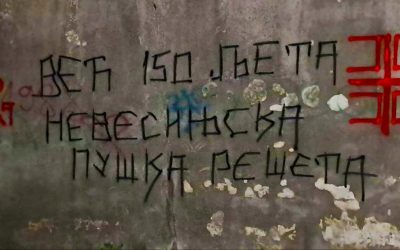 ВЕЋ 150 ЉЕТА
НЕВЕСИЊСКА
ПУШКА РЕШЕТА